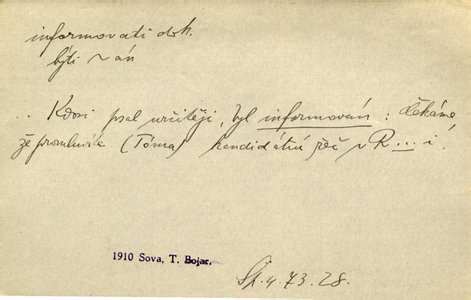 informovati dok.
býti ~án
.. Kdosi psal určitěji, byl informován : čekáme
že promluvíte (Tóma) kandidátní řeč v R....i!
1910 Sova, T. Bojar.
Sp. 4. 73. 28.